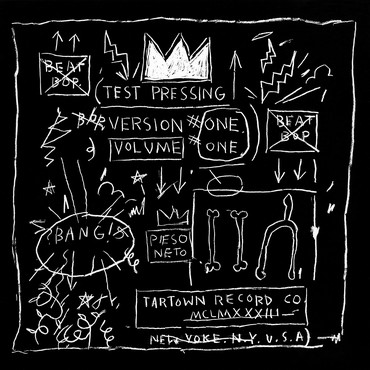 BEAT
BOP
(TEST PRESSING
BOP VERSION #ONE
VOLUME #ONE
BEAT
BOP
BANG!
PIESO
NETO
TARTOWN RECORD CO
MCLMXXXIII
NEW YOKE, N.Y. U.S.A)